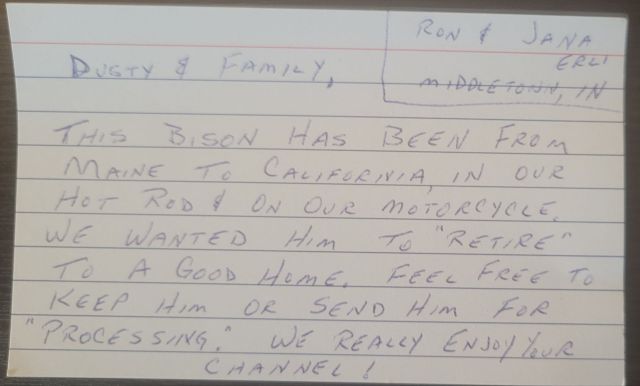 RON & JANA
ERLI
MIDDLETOWN, IN
DUSTY & FAMILY,
THIS BISON HAS BEEN FROM
MAINE TO CALIFORNIA, IN OUR
HOT ROD & ON OUR MOTORCYCLE.
WE WANTED HIM TO "RETIRE"
TO A GOOD HOME. FEEL FREE TO
KEEP HIM OR SEND HIM FOR
"PROCESSING." WE REALLY ENJOY YOUR
CHANNEL!